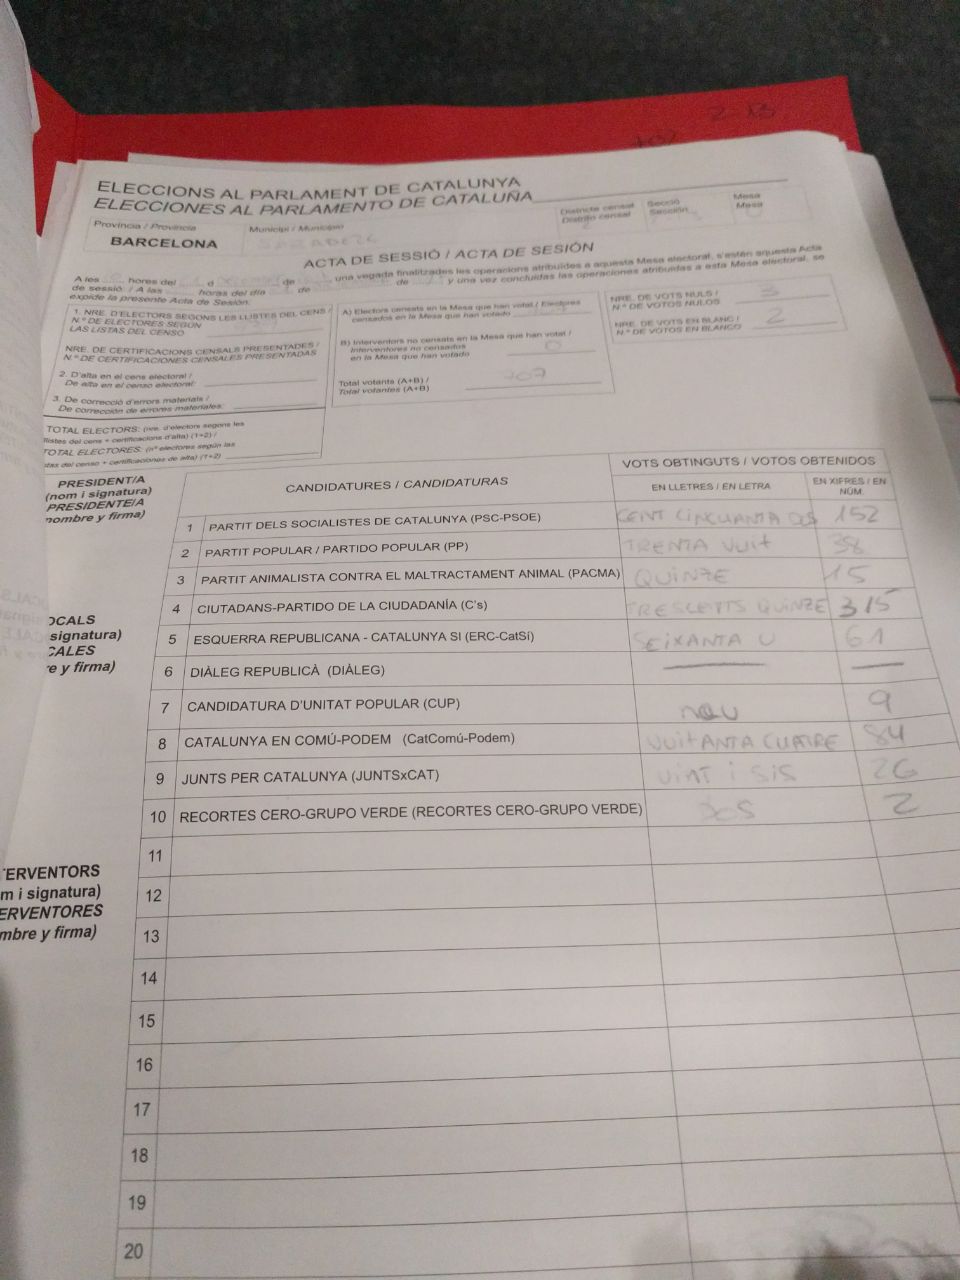 ELECCIONS AL PARLAMENT DE CATALUNYA
ELECCIONES AL PARLAMENTO DE CATALUÑA
Província / Provincia
BARCELONA
Municipi / Municipio
Districte censal
Distrito censal
Secció
Sección
Mesa
Mesa
ACTA DE SESSIÓ / ACTA DE SESIÓN
A les hores del d de una vegada finalitzades les operacions atribuïdes a aquesta Mesa electoral, s'estén aquesta Acta
de sessió. / A las horas del día de de y una vez concluidas las operaciones atribuidas a esta Mesa electoral, se
expide la presente Acta de Sesión:
1. NRE. D'ELECTORS SEGONS LES LLISTES DEL CENS /
N.º DE ELECTORES SEGÚN
LAS LISTAS DEL CENSO
NRE. DE CERTIFICACIONS CENSALS PRESENTADES /
N.º DE CERTIFICACIONES CENSALES PRESENTADAS
2. D'alta en el cens electoral /
De alta en el censo electoral:
3. De correcció d'errors materials /
De corrección de errores materiales:
TOTAL ELECTORS: (nre. d'electors segons les
llistes del cens + certificacions d'alta) (1+2) /
TOTAL ELECTORES: (nº electores según las
listas del censo + certificaciones de alta) (1+2)
A) Electors censats en la Mesa que han votat / Electores
censados en la Mesa que han votado
B) Interventors no censats en la Mesa que han votat /
Interventores no censados
en la Mesa que han votado 0
Total votants (A+B) /
Total votantes (A+B) 707
NRE. DE VOTS NULS /
N.º DE VOTOS NULOS 3
NRE. DE VOTS EN BLANC /
N.º DE VOTOS EN BLANCO 2
PRESIDENT/A
(nom i signatura)
PRESIDENTE/A
nombre y firma)
CANDIDATURES / CANDIDATURAS
VOTS OBTINGUTS / VOTOS OBTENIDOS
EN LLETRES / EN LETRA
EN XIFRES / EN NÚM.
1 PARTIT DELS SOCIALISTES DE CATALUNYA (PSC-PSOE) CENT CINCUANTA DOS 152
2 PARTIT POPULAR / PARTIDO POPULAR (PP) TRENTA VUIT 38
3 PARTIT ANIMALISTA CONTRA EL MALTRACTAMENT ANIMAL (PACMA) QUINZE 15
4 CIUTADANS-PARTIDO DE LA CIUDADANÍA (C's) TRESCENTS QUINZE 315
5 ESQUERRA REPUBLICANA - CATALUNYA SI (ERC-CatSí) SEIXANTA U 61
6 DIÀLEG REPUBLICÀ (DIÀLEG)
7 CANDIDATURA D'UNITAT POPULAR (CUP) nou 9
8 CATALUNYA EN COMÚ-PODEM (CatComú-Podem) VUITANTA CUATRE 84
9 JUNTS PER CATALUNYA (JUNTSxCAT) VINT I SIS 26
10 RECORTES CERO-GRUPO VERDE (RECORTES CERO-GRUPO VERDE) DOS 2
11
12
13
14
15
16
17
18
19
20
OCALS
signatura)
CALES
e y firma)
TERVENTORS
m i signatura)
ERVENTORES
mbre y firma)